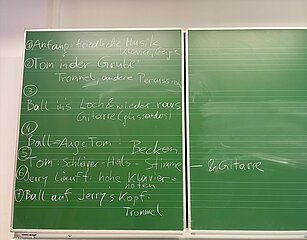 ① Anfang: friedliche Musik
Klavier, Geige
② Tom in der Grube
Trommel, andere Percussion
③
Ball ins Loch & wieder raus
Gitarre (glissandos)
④
Ball → Auge Tom:
Becken
⑤ Tom: Schleifer-Hals - Stimme — & Gitarre
⑥ Jerry läuft: hohe Klavier-
noten
⑦ Ball auf Jerry's Kopf:
Trommel